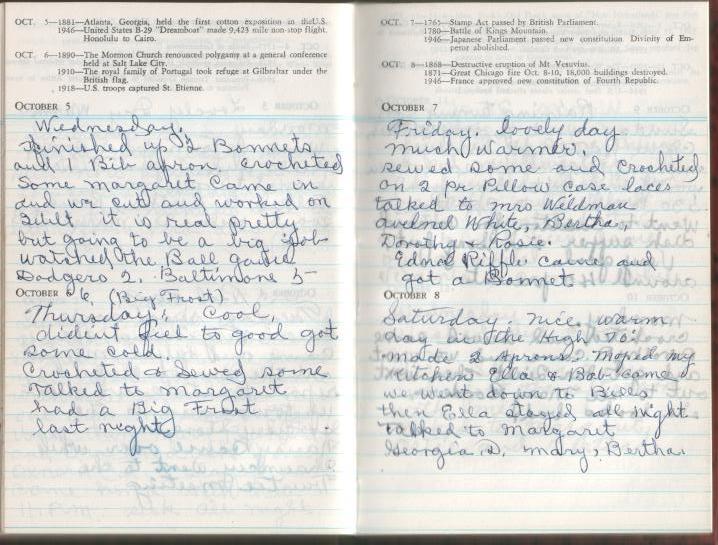 OCT. 5—1881—Atlanta, Georgia, held the first cotton exposition in the U.S.
1946—United States B-29 "Dreamboat" made 9,423 mile non-stop flight.
Honolulu to Cairo.
OCT. 6—1890—The Mormon Church renounced polygamy at a general conference
held at Salt Lake City.
1910—The royal family of Portugal took refuge at Gilbraltar under the
British flag.
1918—U.S. troops captured St. Etienne.
OCTOBER 5
Wednesday.
Finished up 2 Bonnets
and 1 Bib apron, crocheted
Some margaret Came in
and we cut and worked on
quilt it is real pretty
but going to be a big job
watched the Ball game
Dodgers 2. Baltimore 5-
OCTOBER 6 6. (Big Frost)
Thursday, Cool,
dident feel to good got
some cold.
Crocheted & Sewed some
Talked to margaret
had a Big Frost
last night
OCT. 7—1765—Stamp Act passed by British Parliament.
1780—Battle of Kings Mountain.
1946—Japanese Parliament passed new constitution. Divinity of Em-
peror abolished.
OCT. 8—1868—Destructive eruption of Mt Vesuvius.
1871—Great Chicago fire Oct. 8-10, 18,000 buildings destroyed.
1946—France approved new constitution of Fourth Republic.
OCTOBER 7
Friday. lovely day
much warmer.
sewed some and crocheted
on 2 pr Pillow case laces
talked to mrs Weldman
White, Bertha,
Dorothy & Rosie.
Edna Piffle came and
got a Bonnet
OCTOBER 8
Saturday nice warm
day in the High 70's
made 2 Aprons. Moped my
Kitchen Ella & Bob came
we went down to Bills
then Ella stayed all night
talked to Margaret
Georgia D. mary, Bertha.